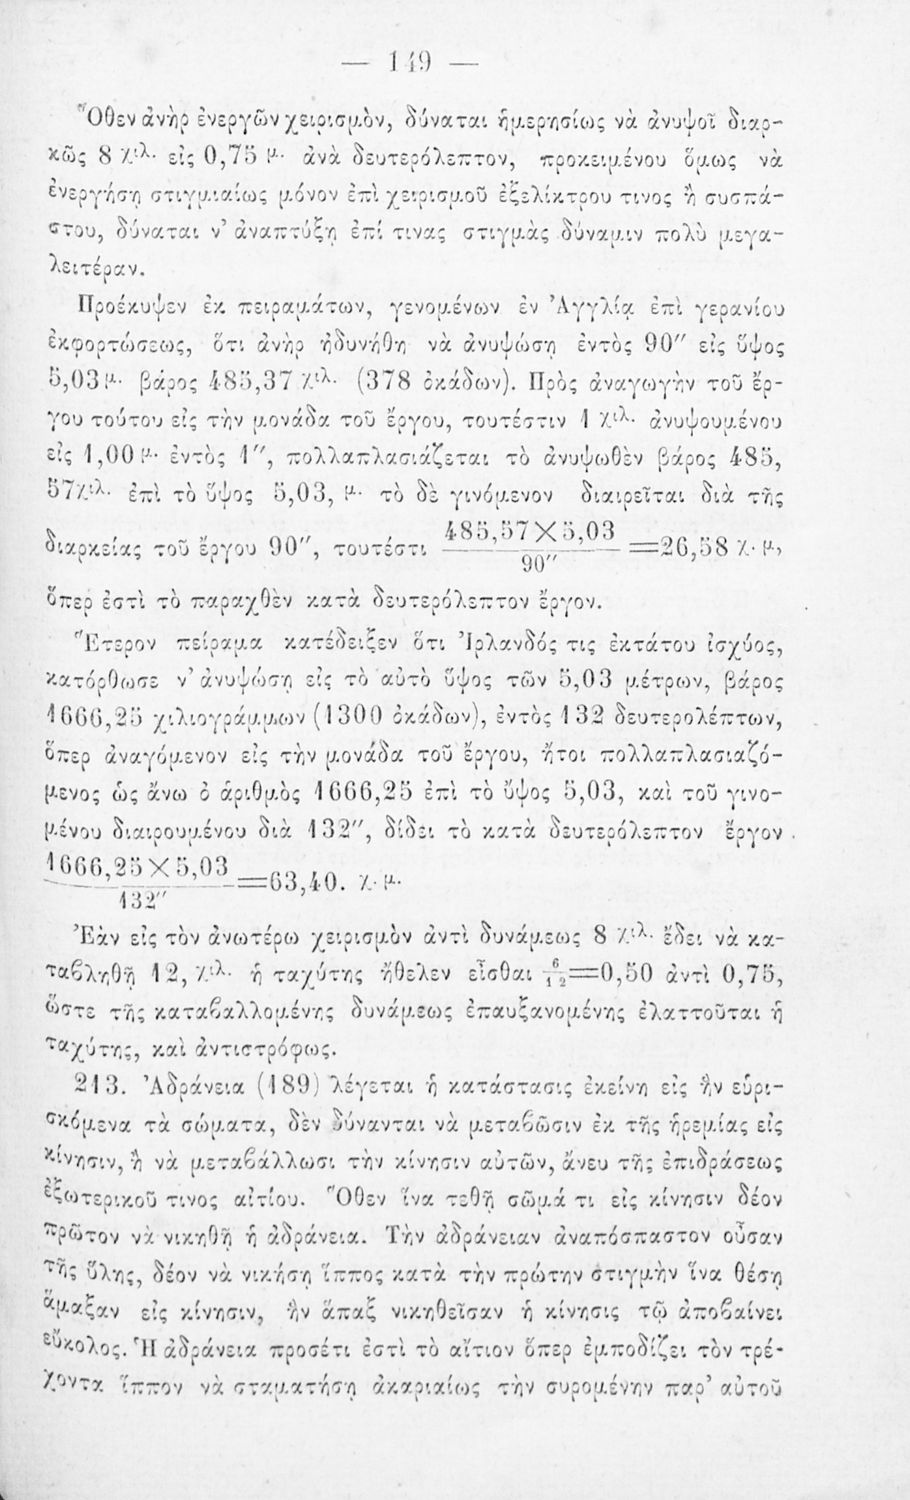 — 149 —
Ὅθεν ἀνὴρ ἐνεργῶν χειρισμὸν, δύναται ἡμερησίως νὰ ἀνυψοῖ διαρ-
κῶς 8 χιλ. εἰς 0,75 μ. ἀνὰ δευτερόλεπτον, προκειμένου ὅμως νὰ
ἐνεργήσῃ στιγμιαίως μόνον ἐπὶ χειρισμοῦ ἐξελίκτρου τινος ἢ συσπά-
στου, δύναται ν’ ἀναπτύξῃ ἐπί τινας στιγμὰς δύναμιν πολὺ μεγα-
λειτέραν.
Προέκυψεν ἐκ πειραμάτων, γενομένων ἐν Ἀγγλίᾳ ἐπὶ γερανίου
ἐκφορτώσεως, ὅτι ἀνὴρ ἠδυνήθη νὰ ἀνυψώσῃ ἐντὸς 90″ εἰς ὕψος
5,03 μ. βάρος 485,37 χιλ. (378 ὀκάδων). Πρὸς ἀναγωγὴν τοῦ ἔρ-
γου τούτου εἰς τὴν μονάδα τοῦ ἔργου, τουτέστιν 1 χιλ. ἀνυψουμένου
εἰς 1,00 μ. ἐντὸς 1″, πολλαπλασιάζεται τὸ ἀνυψωθὲν βάρος 485,
57χιλ. ἐπὶ τὸ ὕψος 5,03, μ. τὸ δὲ γινόμενον διαιρεῖται διὰ τῆς
διαρκείας τοῦ ἔργου 90″, τουτέστι 485,57×5,03 / 90″ =26,58 χ. μ,
ὅπερ ἐστὶ τὸ παραχθὲν κατὰ δευτερόλεπτον ἔργον.
Ἕτερον πείραμα κατέδειξεν ὅτι Ἰρλανδός τις ἐκτάτου ἰσχύος,
κατόρθωσε ν’ ἀνυψώσῃ εἰς τὸ αὐτὸ ὕψος τῶν 5,03 μέτρων, βάρος
1666,25 χιλιογράμμων (1300 ὀκάδων), ἐντὸς 132 δευτερολέπτων,
ὅπερ ἀναγόμενον εἰς τὴν μονάδα τοῦ ἔργου, ἤτοι πολλαπλασιαζό-
μενος ὡς ἄνω ὁ ἀριθμὸς 1666,25 ἐπὶ τὸ ὕψος 5,03, καὶ τοῦ γινο-
μένου διαιρουμένου διὰ 132″, δίδει τὸ κατὰ δευτερόλεπτον ἔργον
1666,25×5,03 / 132″ =63,40. χ. μ.
Ἐὰν εἰς τὸν ἀνωτέρω χειρισμὸν ἀντὶ δυνάμεως 8 χιλ. ἔδει νὰ κα-
ταβληθῇ 12, χιλ. ἡ ταχύτης ἤθελεν εἶσθαι 6/12=0,50 ἀντὶ 0,75,
ὥστε τῆς καταβαλλομένης δυνάμεως ἐπαυξανομένης ἐλαττοῦται ἡ
ταχύτης, καὶ ἀντιστρόφως.
213. Ἀδράνεια (189) λέγεται ἡ κατάστασις ἐκείνη εἰς ἣν εὑρι-
σκόμενα τὰ σώματα, δὲν δύνανται νὰ μεταβῶσιν ἐκ τῆς ἠρεμίας εἰς
κίνησιν, ἢ νὰ μεταβάλλωσι τὴν κίνησιν αὐτῶν, ἄνευ τῆς ἐπιδράσεως
ἐξωτερικοῦ τινος αἰτίου. Ὅθεν ἵνα τεθῇ σῶμά τι εἰς κίνησιν δέον
πρῶτον νὰ νικηθῇ ἡ ἀδράνεια. Τὴν ἀδράνειαν ἀναπόσπαστον οὖσαν
τῆς ὕλης, δέον νὰ νικήσῃ ἵππος κατὰ τὴν πρώτην στιγμὴν ἵνα θέσῃ
ἅμαξαν εἰς κίνησιν, ἣν ἅπαξ νικηθεῖσαν ἡ κίνησις τῷ ἀποβαίνει
εὔκολος. Ἡ ἀδράνεια προσέτι ἐστὶ τὸ αἴτιον ὅπερ ἐμποδίζει τὸν τρέ-
χοντα ἵππον νὰ σταματήσῃ ἀκαριαίως τὴν συρομένην παρ’ αὐτοῦ